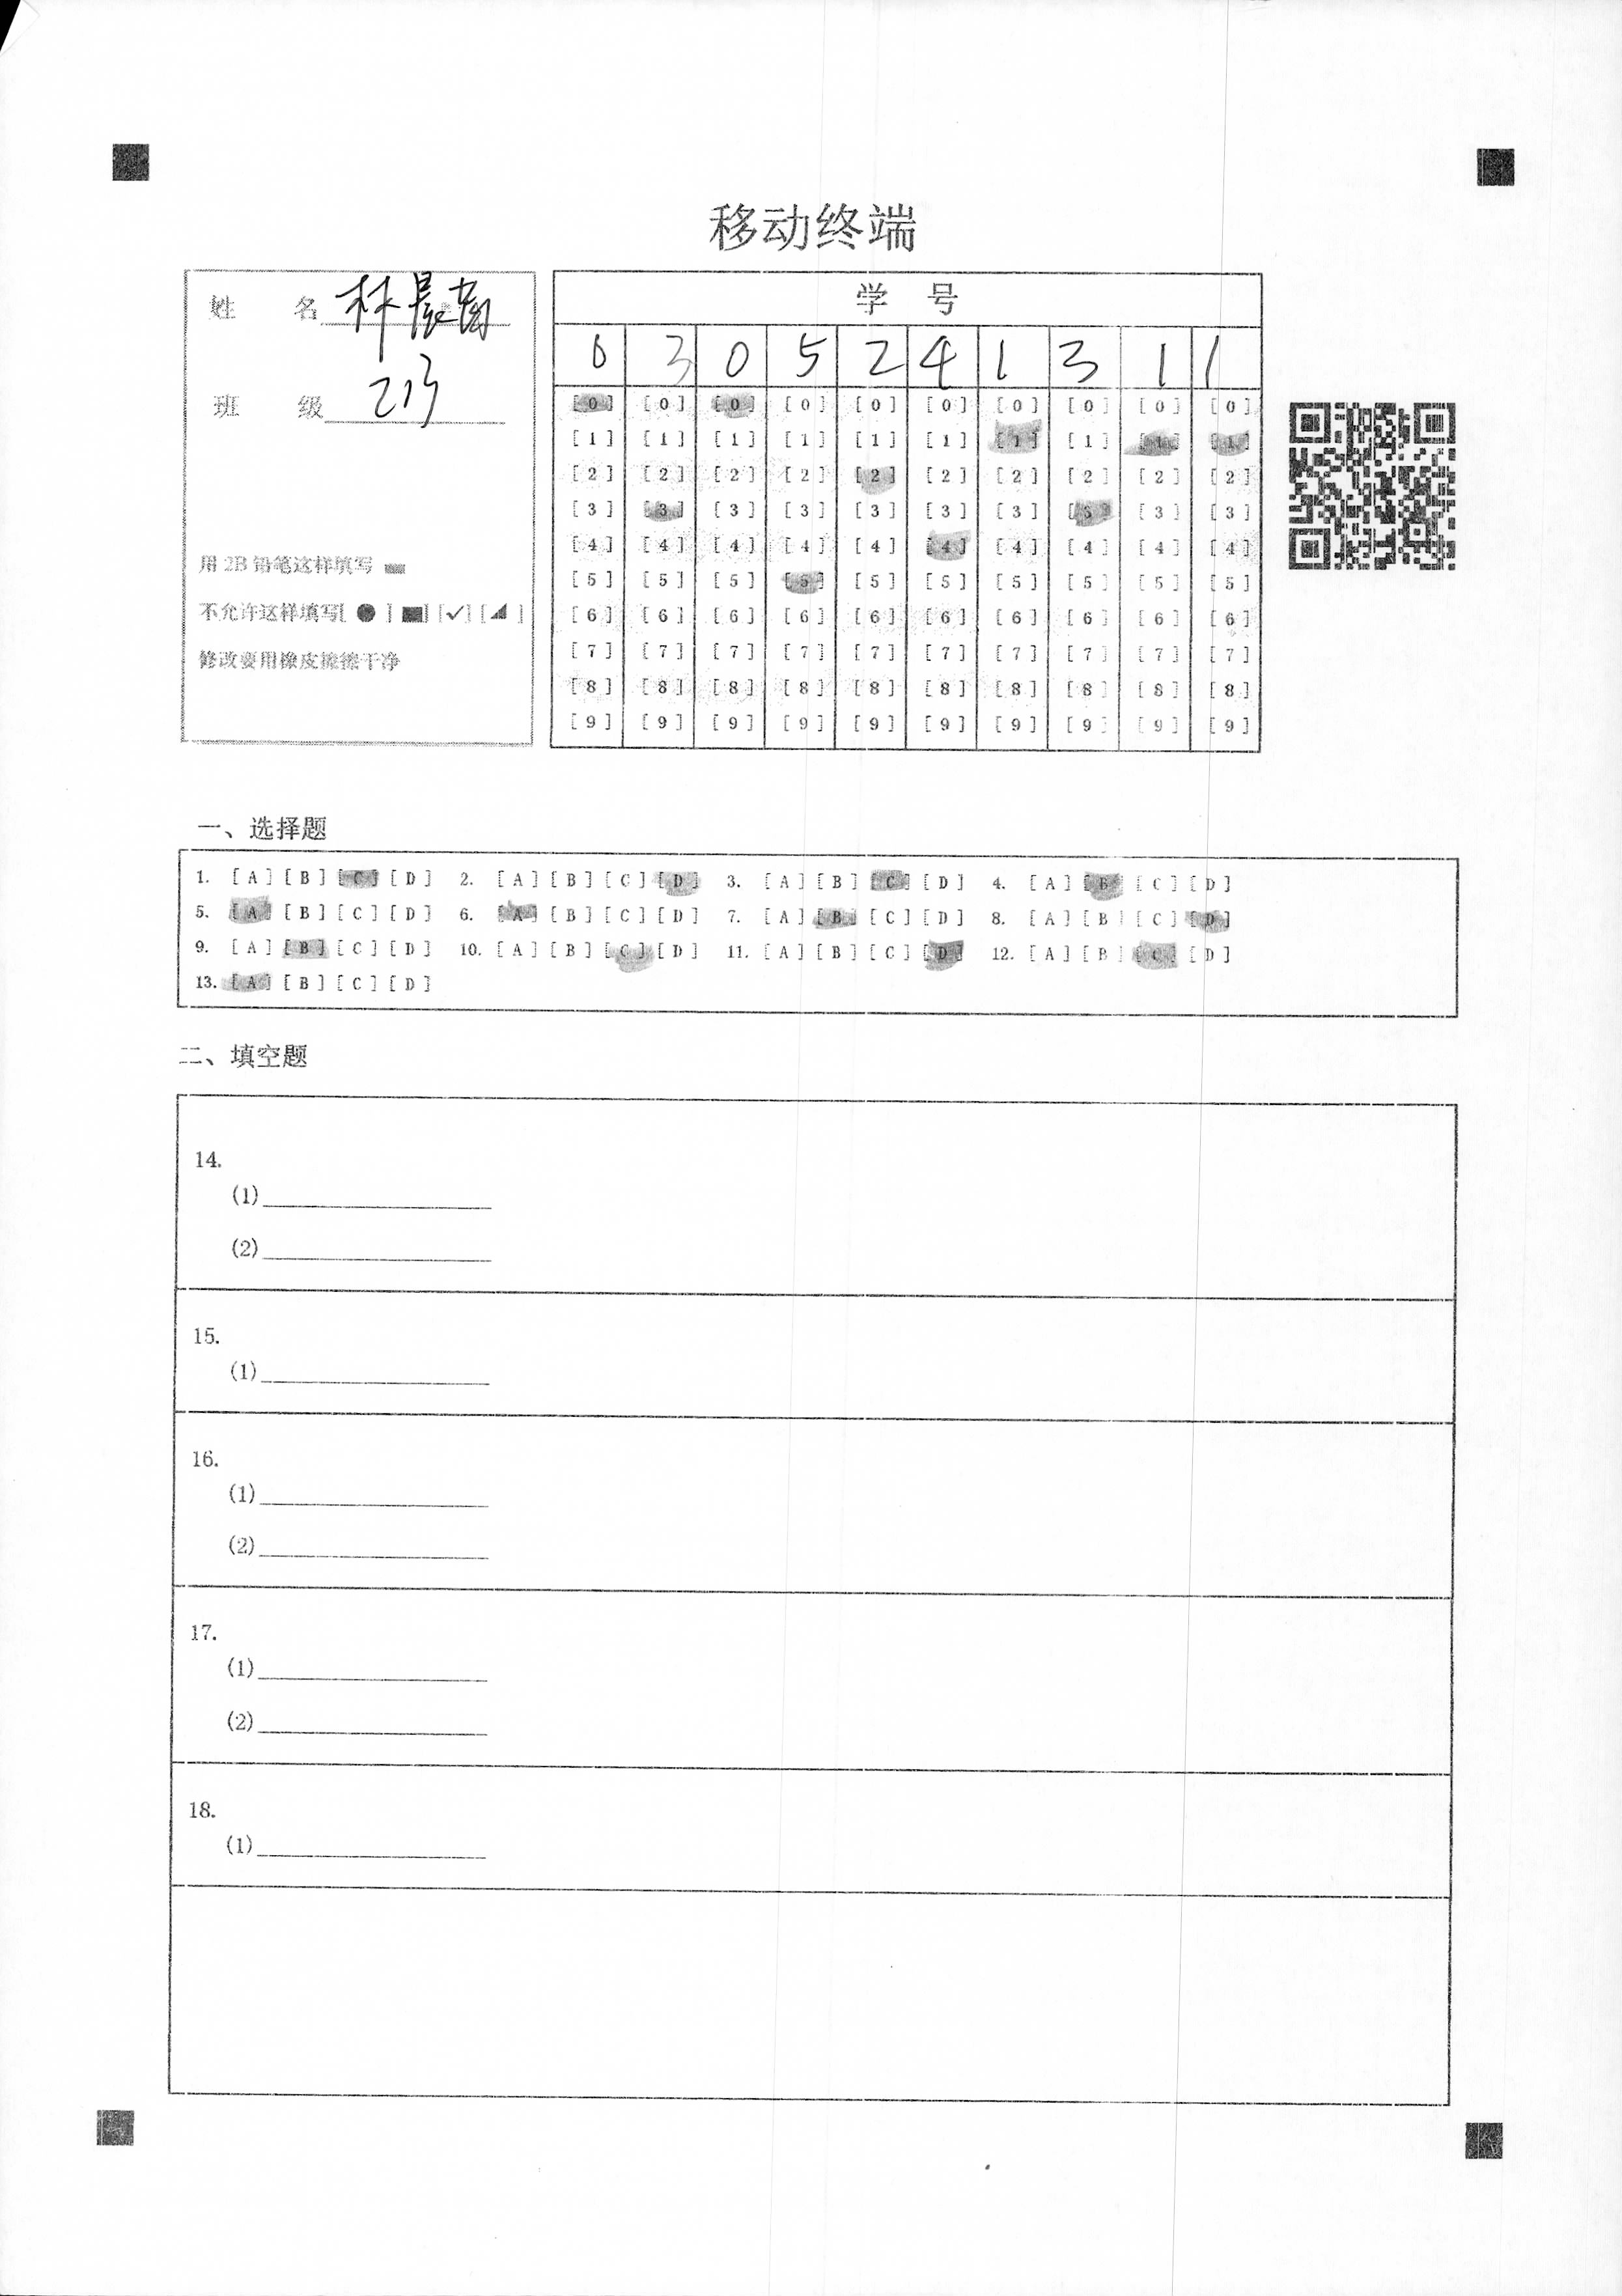 移动终端
姓 名 林晨
班 级 213
用 2B 铅笔这样填写
不允许这样填写[ ● ] [■] [✓] [◢ ]
修改要用橡皮擦擦干净
学 号
0 3 0 5 2 4 1 3 1 1
[0] [0] [0] [0] [0] [0] [0] [0] [0] [0]
[1] [1] [1] [1] [1] [1] [1] [1] [1] [1]
[2] [2] [2] [2] [2] [2] [2] [2] [2] [2]
[3] [3] [3] [3] [3] [3] [3] [3] [3] [3]
[4] [4] [4] [4] [4] [4] [4] [4] [4] [4]
[5] [5] [5] [5] [5] [5] [5] [5] [5] [5]
[6] [6] [6] [6] [6] [6] [6] [6] [6] [6]
[7] [7] [7] [7] [7] [7] [7] [7] [7] [7]
[8] [8] [8] [8] [8] [8] [8] [8] [8] [8]
[9] [9] [9] [9] [9] [9] [9] [9] [9] [9]
一、选择题
1. [A] [B] [C] [D] 2. [A] [B] [C] [D] 3. [A] [B] [C] [D] 4. [A] [B] [C] [D]
5. [A] [B] [C] [D] 6. [A] [B] [C] [D] 7. [A] [B] [C] [D] 8. [A] [B] [C] [D]
9. [A] [B] [C] [D] 10. [A] [B] [C] [D] 11. [A] [B] [C] [D] 12. [A] [B] [C] [D]
13. [A] [B] [C] [D]
二、填空题
14.
(1)
(2)
15.
(1)
16.
(1)
(2)
17.
(1)
(2)
18.
(1)